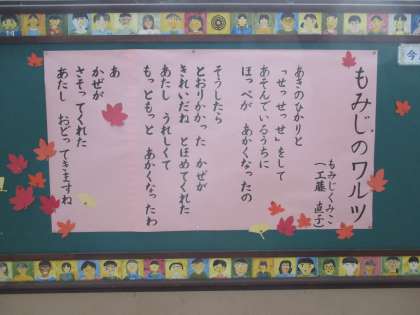 もみじのワルツ
もみじくみこ
(工藤 直子)
あきのひかりと
「せっせっせ」をして
あそんでいるうちに
ほっぺが あかくなったの
そうしたら
とおりかかった かぜが
きれいだね とほめてくれた
あたし うれしくて
もっともっと あかくなったわ
あ
かぜが
さそってくれた
あたし おどってきますね
今